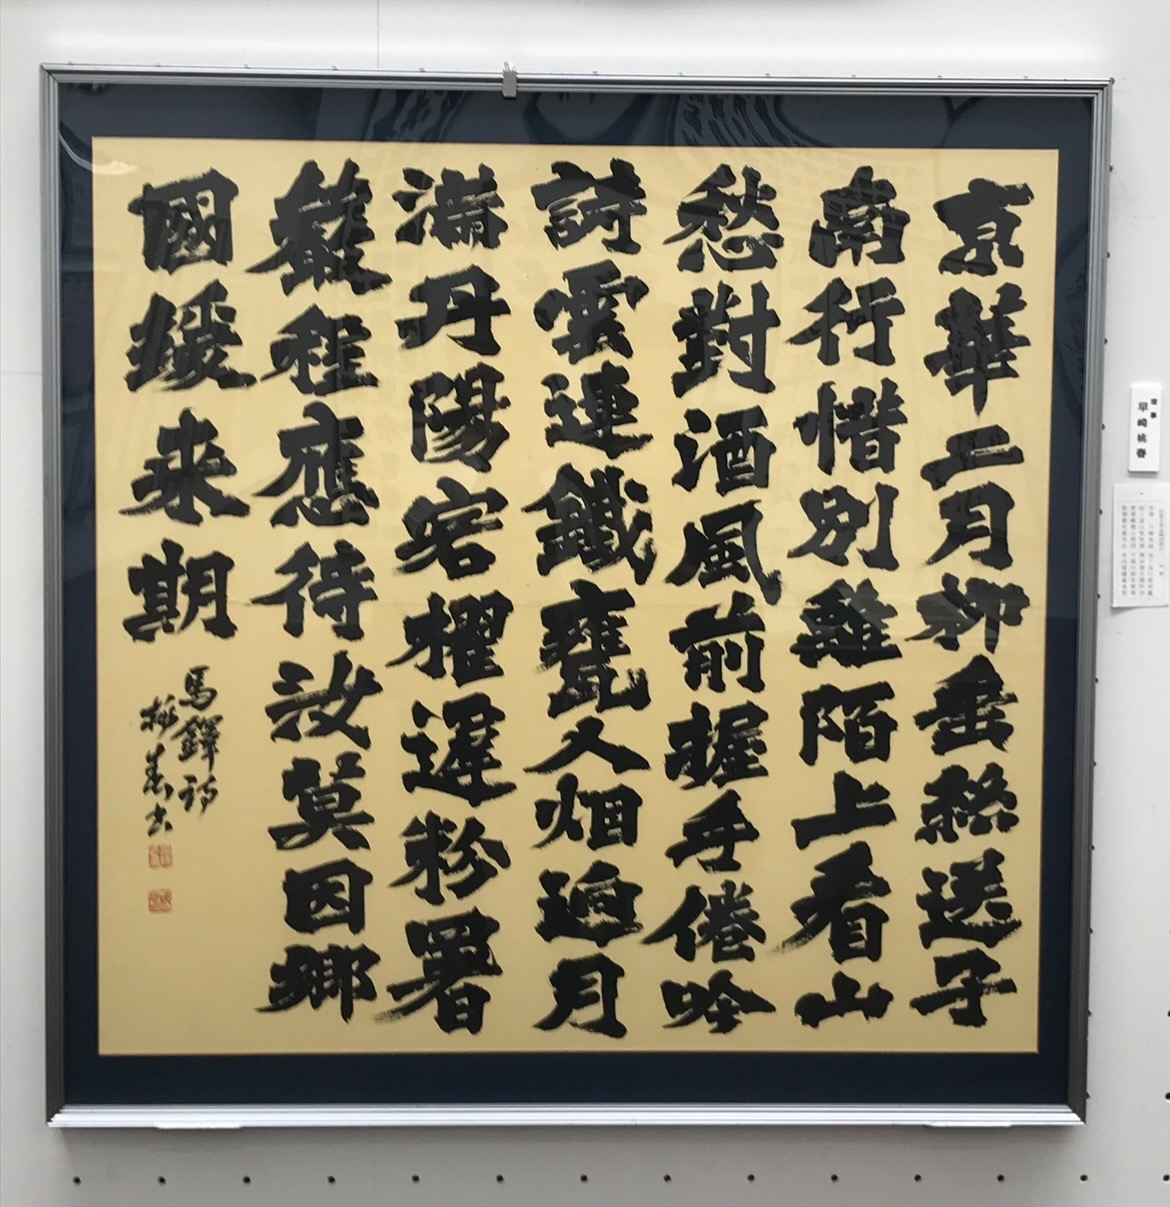 京華二月柳垂絲送子
南行惜別離陌上看山
愁對酒風前握手倦吟
詩雲連鐵甕人烟迥月
滿丹陽客櫂遲粉署
嚴程應待汝莫因鄉
國緩来期
馬鐸詩
桃香書
理事
早崎桃香